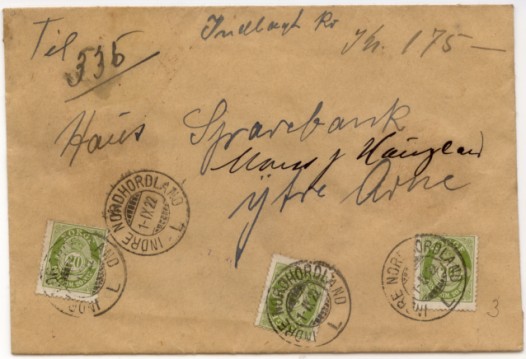 Til
Indlagt Kr
335
Kr. 175 —
Haus Sparebank
Mons J Haugland
ytre Arne
INDRE NORDHORDLAND
1-IX 22
L
20
INDRE NORDHORDLAND
1-IX 22
L
INDRE NORDHORDLAND
L
3